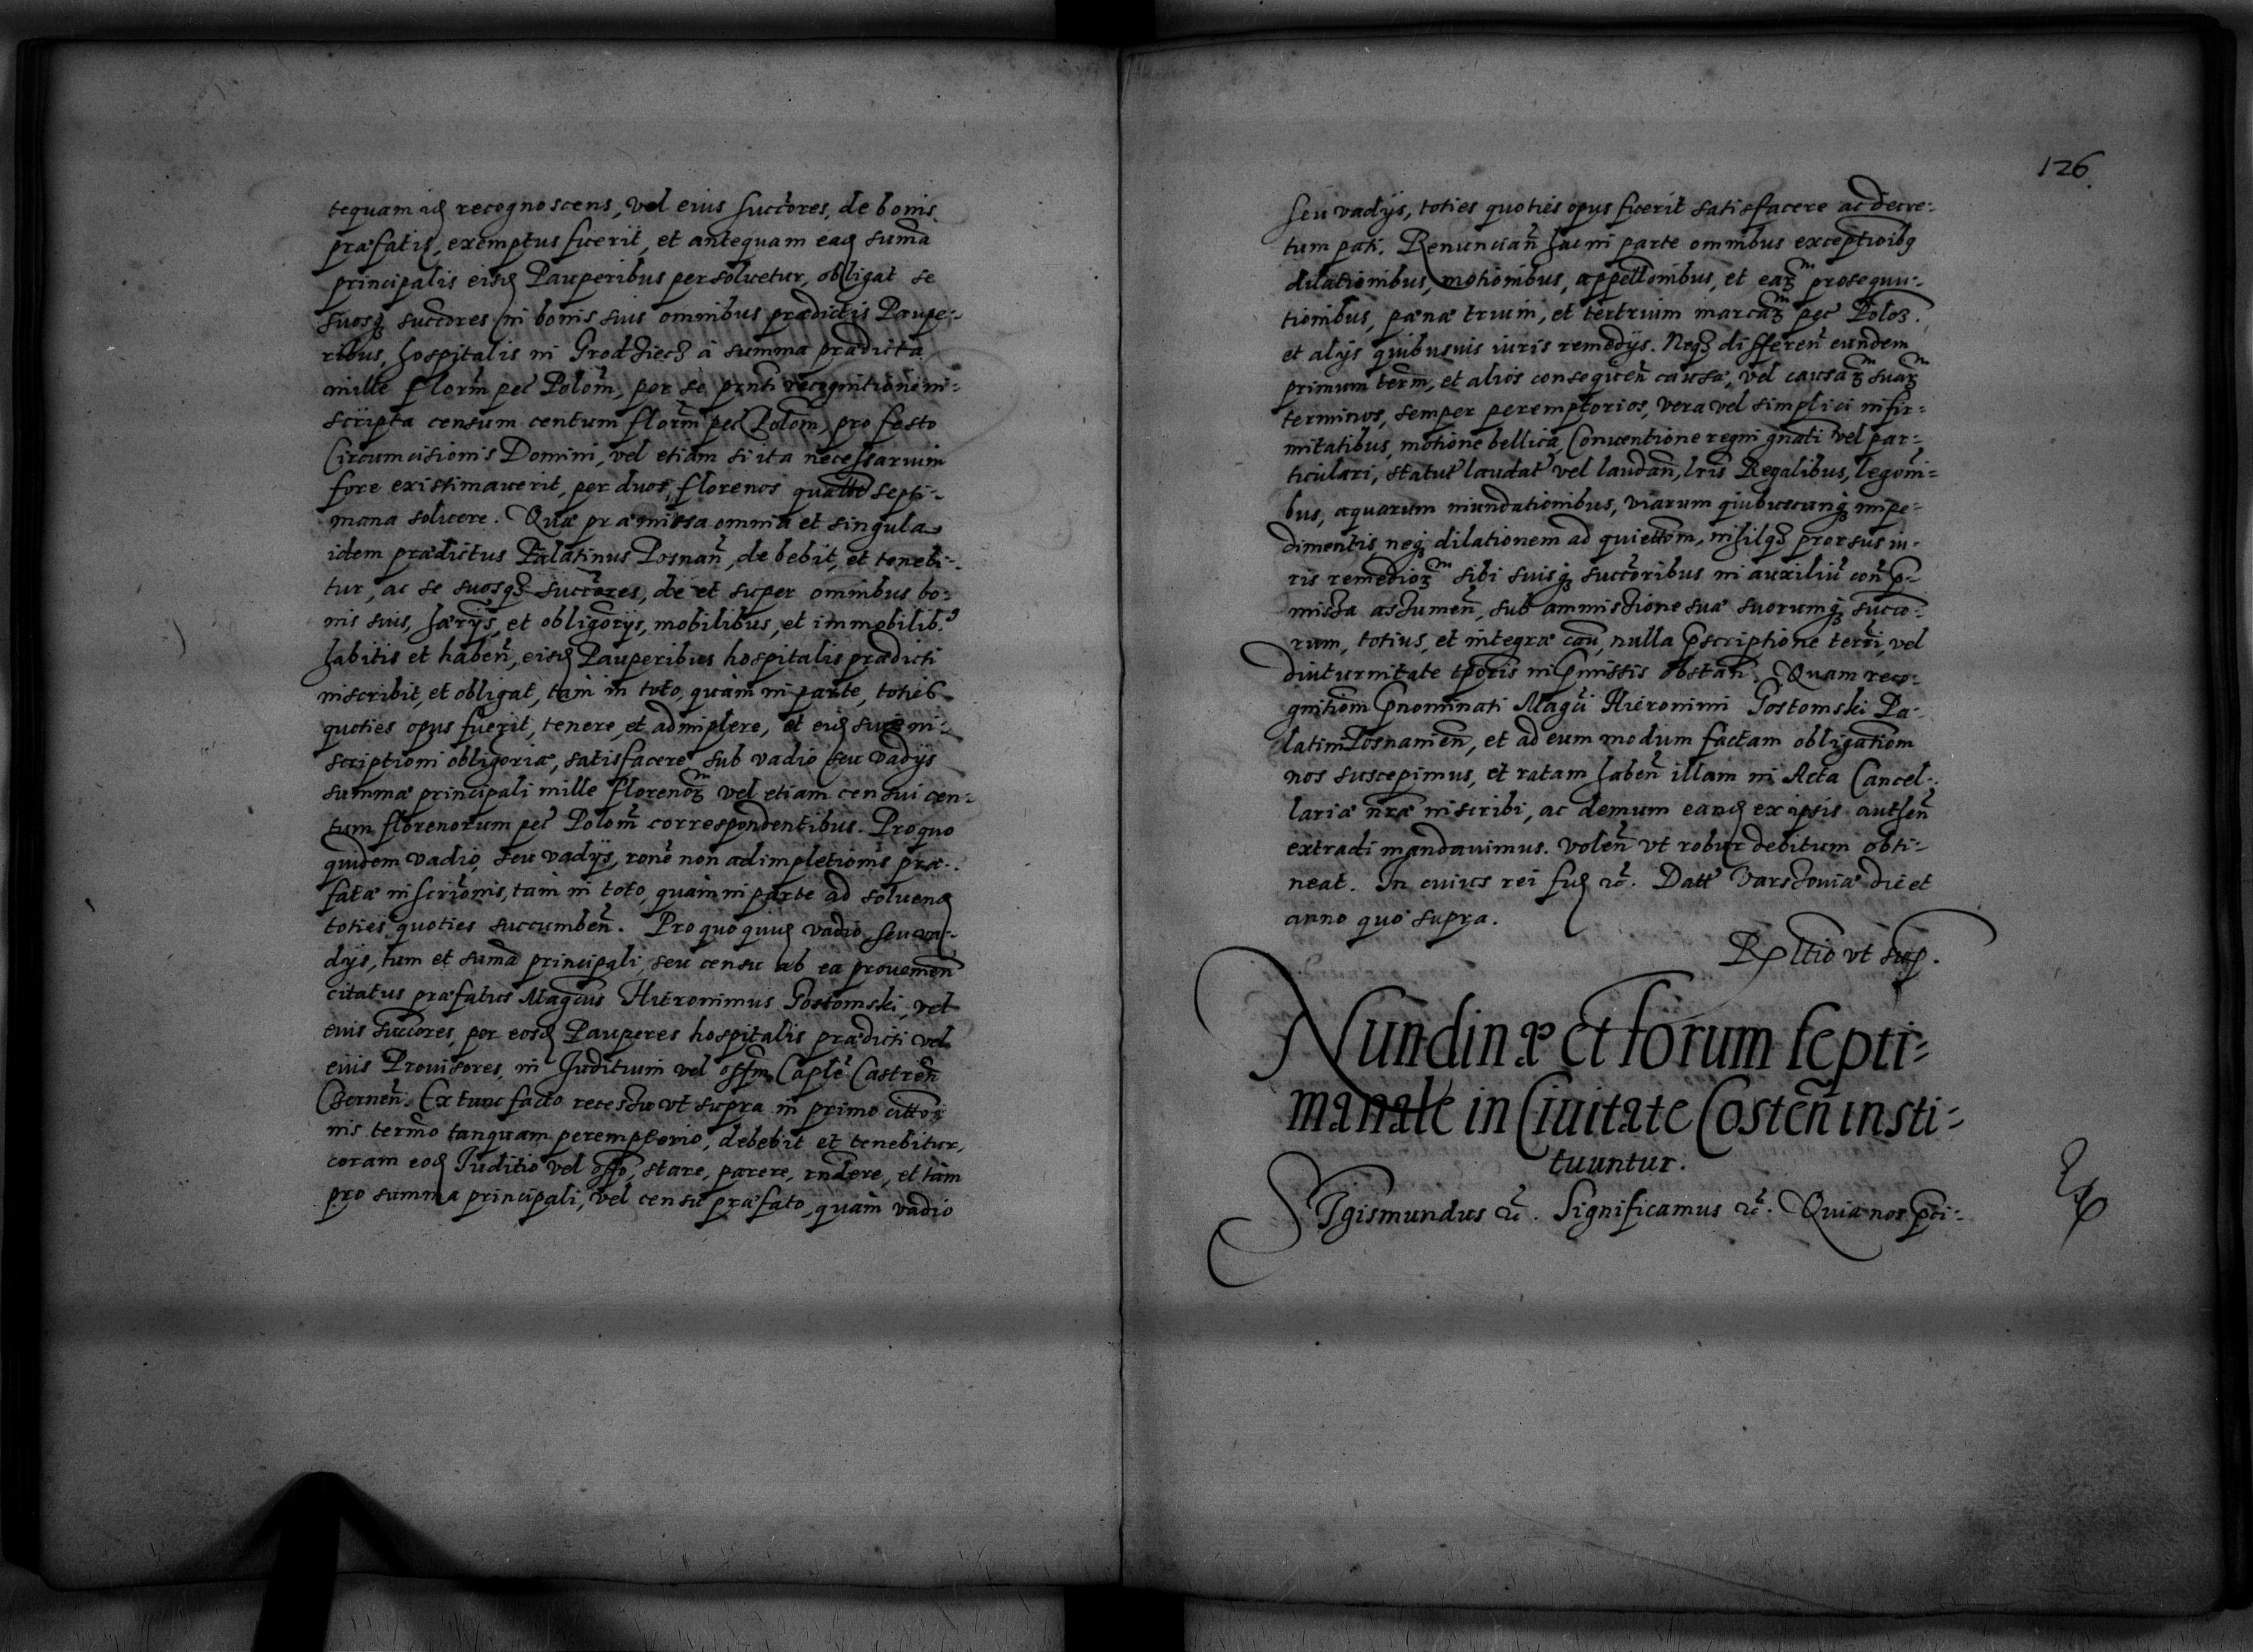 tequam id recognoscens, vel eius succ̃ores, de bonis
præfatis, exemptus fuerit, et antequam ead sum̃a
principalis eisd Pauperibus persoluetur, obligat se
suosq succ̃ores in bonis suis omnibus prædictis Paupe-
ribus, hospitalis in Grodziecz à summa prædicta
mille flor̃m pec̃ Polõm, per se pr̃nti recognitione in-
scripta censum centum flor̃m pec̃ Polõm, pro festo
Circumcisionis Domini, vel etiam si ita necessarium
fore existimauerit, per duos florenos qualibet septi-
mana soluere. Quæ præmissa omnia et singula
idem prædictus Palatinus Posnañ, debebit, et tenebi-
tur, ac se suosq succ̃ores, de et super omnibus bo-
nis suis, hærijs, et obligõrijs, mobilibus, et immobilib9
habitis et habeñ, eisd Pauperibus hospitalis prædicti
inscribit, et obligat, tam in toto, quàm in parte, toties
quoties opus fuerit, tenere, et adimplere, et eid suæ in-
scriptioni obligõriæ, satisfacere sub vadio seu vadijs
summæ principali mille florenoȝ vel etiam censui cen-
tum florenorum pec̃ Polõm correspondentibus. Pro quo
quidem vadio, seu vadijs, rõne non adimpletionis præ-
fatæ inscriõnis, tam in toto, quàm in parte ad soluend
toties quoties succumbeñ. Pro quo quid vadio, seu va-
dijs, tum et sum̃a principali, seu censu ab ea proueñien
citatus præfatus Mag̃cus Hieronimus Gostomski, vel
eius succ̃ores, per eosd Pauperes hospitalis prædicti vel
eius Prouisores, in Juditium vel off̃m Cap̃le Castreñ
Cserneñ. Ex tunc facto recessu vt supra in primo citt̃o-
nis term̃o tanquam peremptorio, debebit et tenebitur,
coram eod Juditio vel off̃o, stare, parere, rñdere, et tam
pro summa principali, vel censu præfato, quàm vadio
126.
seu vadijs, toties quoties opus fuerit satisfacere ac decre-
tum pati. Renunciañ hac in parte omnibus exceptioibq
dilationibus, motionibus, appellõnibus, et eaȝ prosequu-
tionibus, pænæ trium, et ter trium marcaȝ pec̃ Poloȝ.
et alijs quibusuis iuris remedijs. Neqȝ differeñ eundem
primum term̃, et alios consequeñ causæ, vel causaȝ suaȝ
terminos, semper peremptorios, vera vel simplici infir-
mitatibus, motione bellica, Conuentione regni gñali vel par-
ticulari, statut̃ laudat̃ vel laudañ, lr̃is Regalibus, legõni-
bus, aquarum inundationibus, viarum quibuscunq impe-
dimentis, neq dilationem ad quiett̃om, nihilqȝ prorsus iu-
ris remedioȝ sibi suisq succ̃oribus in auxiliũ coñ p̃-
missa assumeñ, sub ammissione suæ suorumq succo-
rum, totius, et integræ cau, nulla p̃scriptione terri, vel
diuturnitate tp̃oris in p̃missis obstañ. Quam reco-
gnitiõm p̃nominati Mag̃ci Hieronimi Gostomski Pa-
latini Posnanieñ, et ad eum modum factam obligatiõm
nos suscepimus, et ratam habeñ illam in Acta Cancel-
lariæ nr̃æ inscribi, ac demum eand ex ipsis autheñ
extradi mandauimus. Voleñ vt robur debitum obti-
neat. In cuius rei fid &c̃. Datt̃ Varsouiæ die et
anno quo supra.
Rp̃ltio vt sup.
Nundinæ et forum septi-
manale in Ciuitate Costeñ insti-
tuuntur.
Sigismundus &c̃. Significamus &c̃. Quia nos p̃ci-